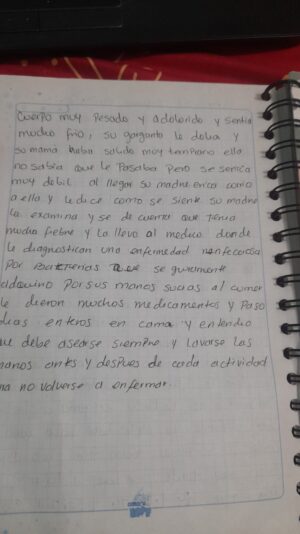 cuerpo muy pesado y adolorido y sentia
mucho frio, su garganta le dolia y
su mama habia salido muy temprano ella
no sabia que le pasaba pero se sentia
muy debil. al llegar su madre cerca como
a ella y le dice como se siente su madre
la examina y se da cuenta que tenia
mucha fiebre y la llevo al medico donde
le diagnostican una enfermedad
por bacterias que seguramente
adquirio por sus manos sucias al comer
le dieron muchos medicamentos y paso
dias enteros en cama y entendio
que debe asearse siempre y lavarse las
manos antes y despues de cada actividad
para no volverse a enfermar.